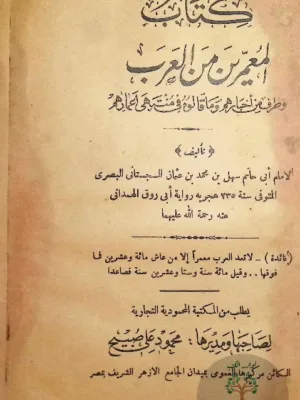 كتاب
المعمرين من العرب
وطرف من أخبارهم وما قالوه فى منتهى أعمارهم
﴿ تأليف ﴾
الامام أبى حاتم سهل بن محمد بن عثمان السجستانى البصرى
المتوفى سنة ٢٣٥ هجرية رواية أبى روق الهمدانى
عنه رحمة الله عليهما
(فائدة) – لا تعد العرب معمراً إلا من عاش مائة وعشرين فما
فوقها .. وقيل مائة سنة وستا وعشرين سنة فصاعدا
يطلب من المكتبة المحمودية التجارية
لصاحبها ومديرها : محمود على صبيح
الكائن مركزها العمومى بميدان الجامع الازهر الشريف بمصر